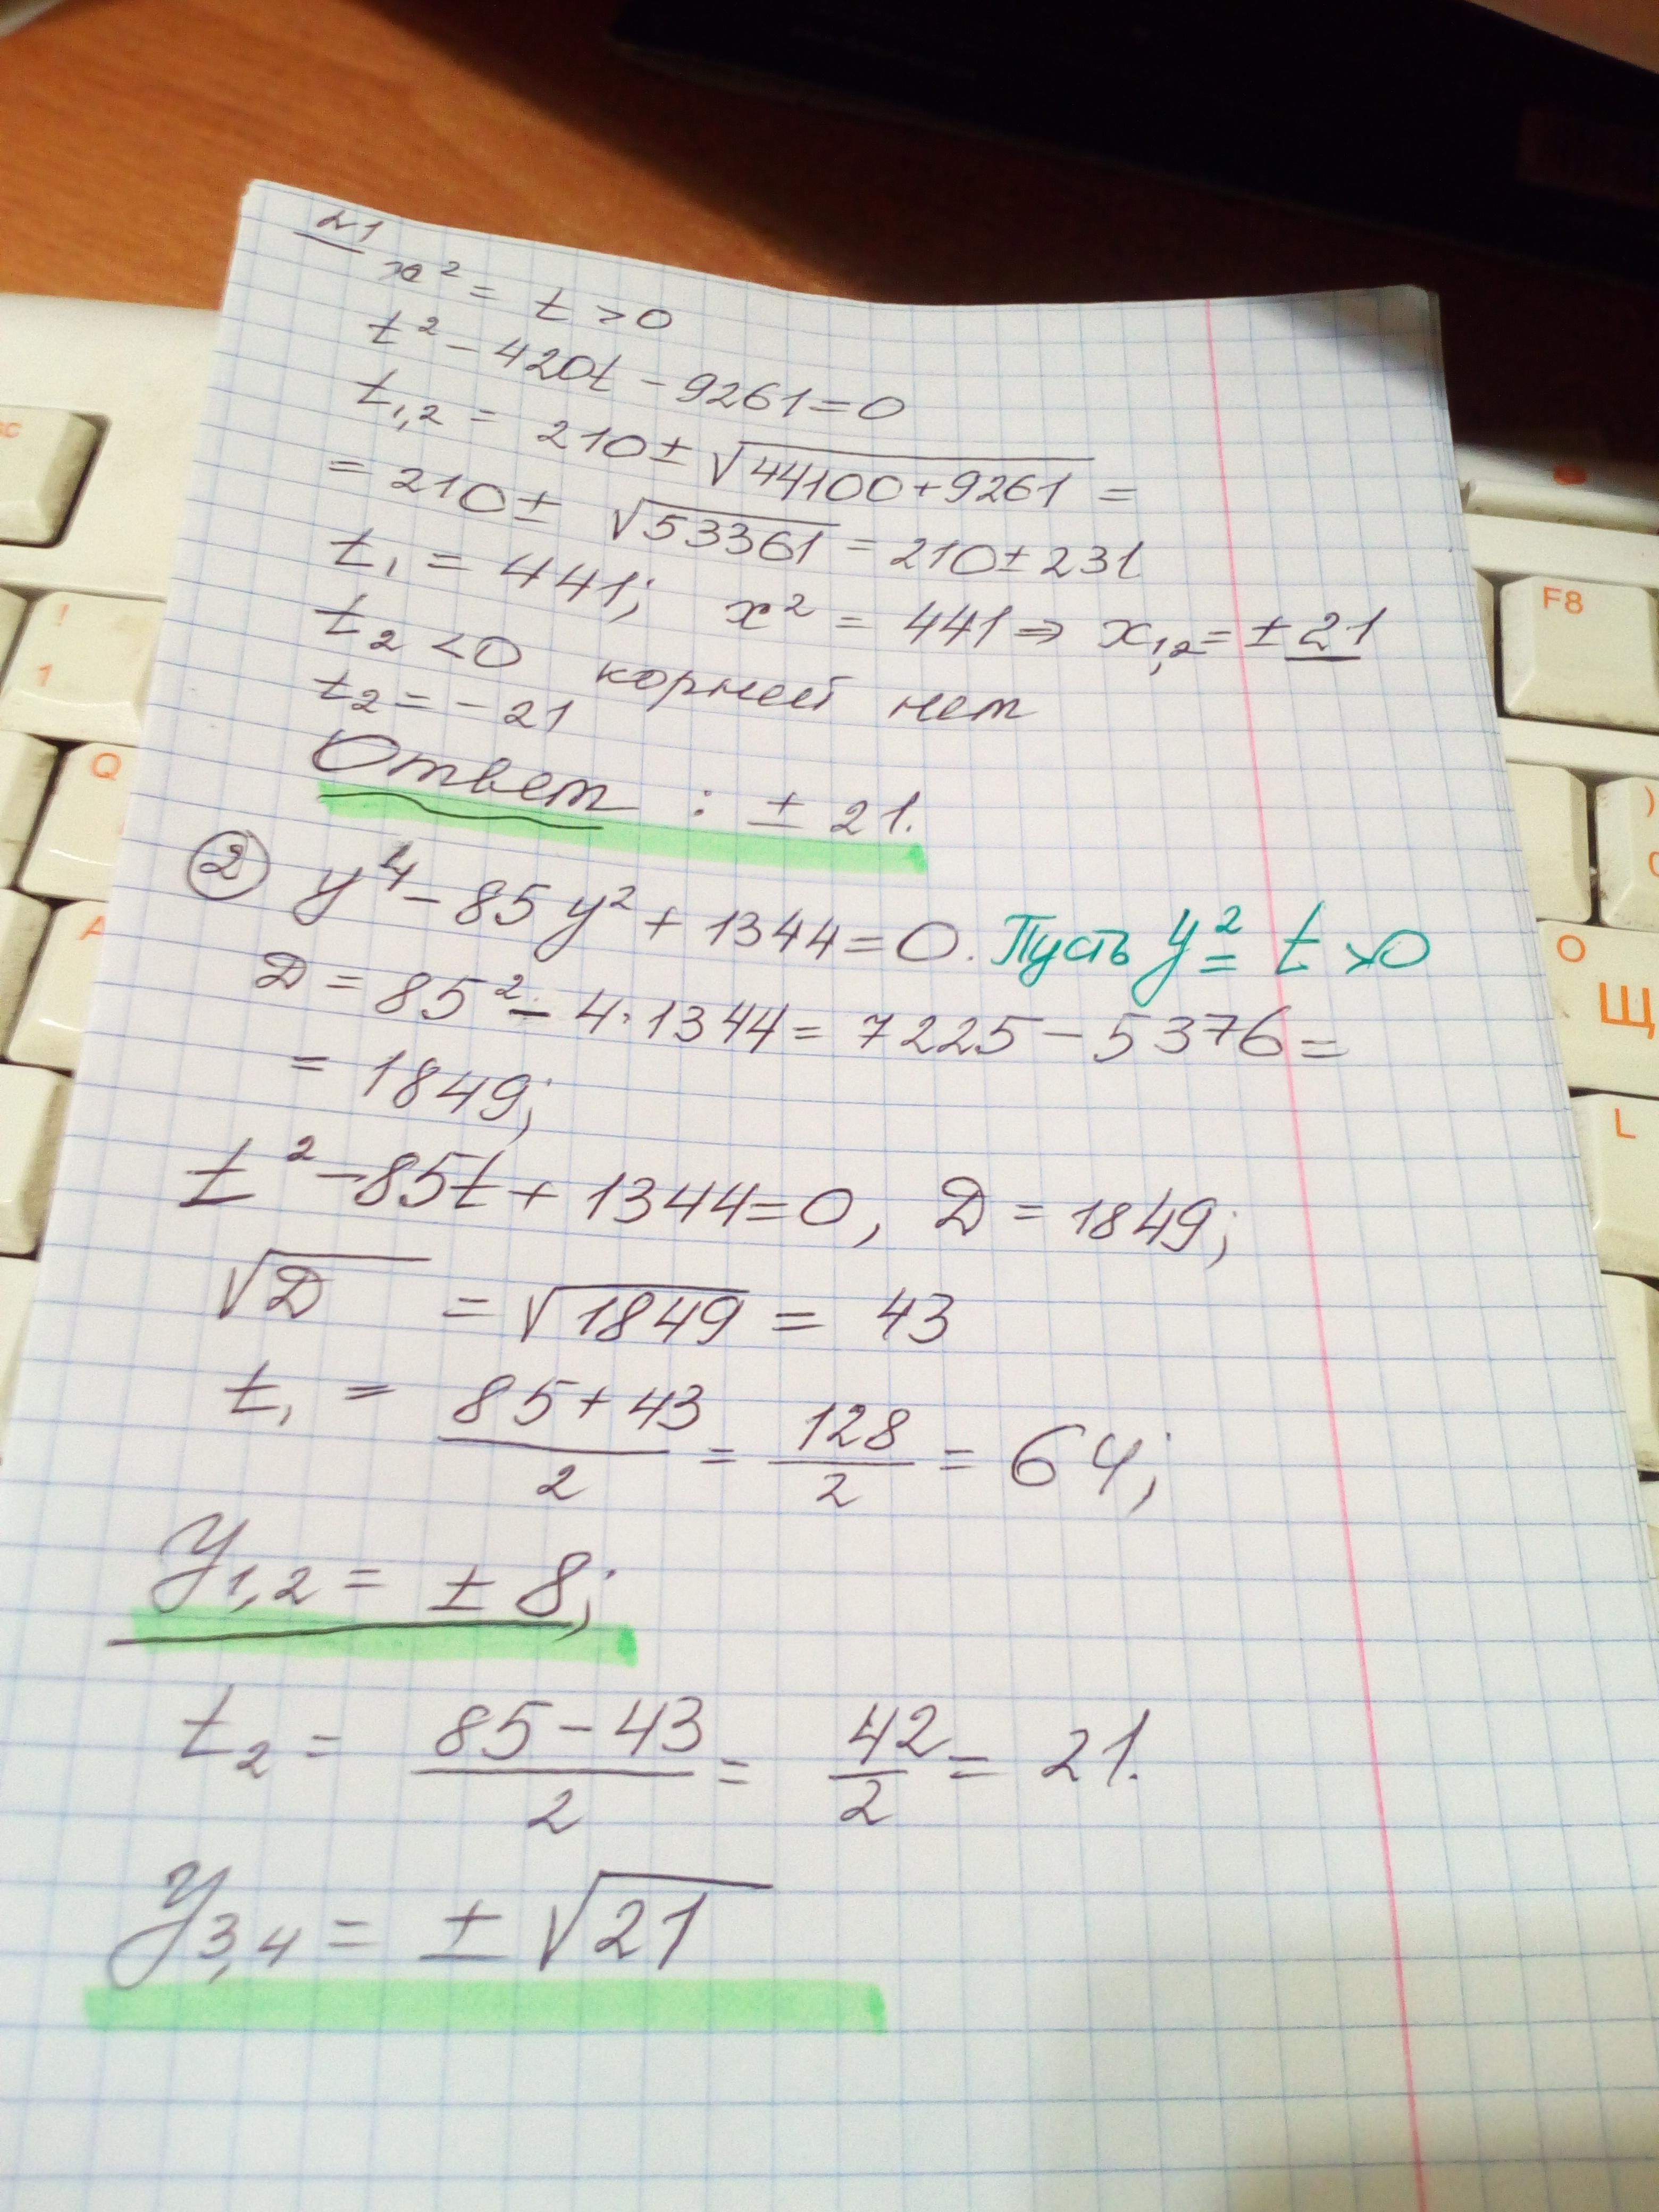 21
x² = t > 0
t² - 420t - 9261 = 0
t₁,₂ = 210 ± √44100+9261 =
= 210 ± √53361 = 210 ± 231
t₁ = 441; x² = 441 ⇒ x₁,₂ = ± 21
t₂ < 0 корней нет
t₂ = - 21
Ответ : ± 21.
② y⁴ - 85y² + 1344 = 0. Пусть y² = t > 0
D = 85² - 4·1344 = 7225 - 5376 =
= 1849;
t² - 85t + 1344 = 0, D = 1849;
√D = √1849 = 43
t₁ = (85 + 43)/2 = 128/2 = 64;
y₁,₂ = ± 8;
t₂ = (85 - 43)/2 = 42/2 = 21.
y₃,₄ = ± √21
!
1
Q
A
F8
)
O
Щ
L